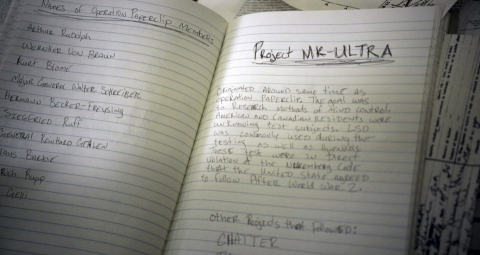 Names of Operation Paperclip Members
Arthur Rudolph
Wernher Von Braun
Kurt Blome
Major General Walter Schreiber
Hermann Becker-Freysing
Siegfried Ruff
General Reinhard Gehlen
PROJECT MK-ULTRA
Originated around same time as
operation Paperclip. The goal was
to Research methods of mind control.
American and Canadian Residents were
unknowing test subjects. LSD
was commonly used during the
testing as well as
These test were in direct
violation of the Nuremberg Code
that the United States agreed
to follow After World War 2.
Other Projects that followed:
CHATTER